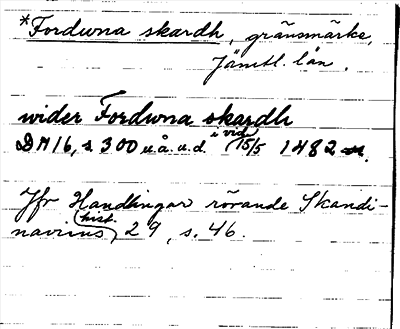 *Fordwna skardh, gränsmärke,
Jämtl. län.
wider Fordwna skardh
DN 16, s. 300 u.å. u.d. i vid. 15/5 1482
Jfr Handlingar rörande Skandi-
naviens hist. 29, s. 46.